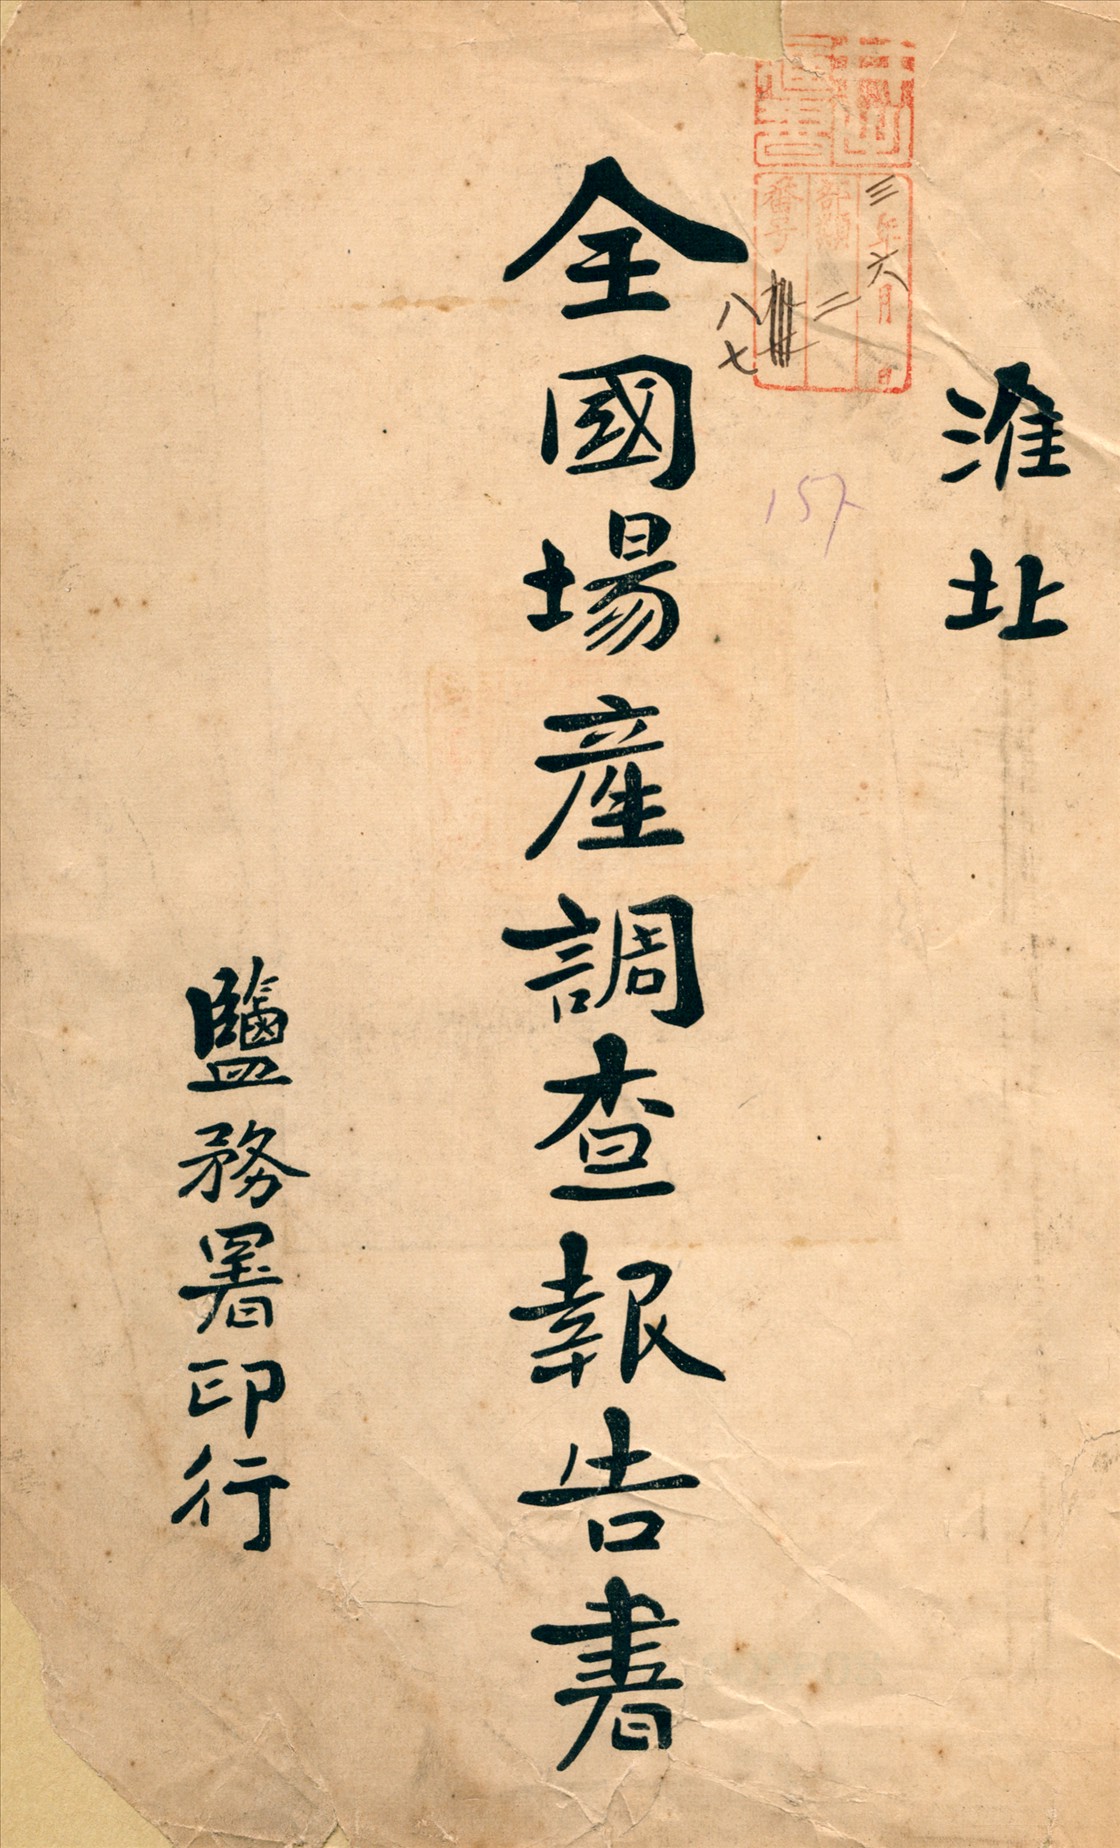 淮北
三年六月 日
部類 二
番号
八七
157
全國場產調查報告書
鹽務署印行